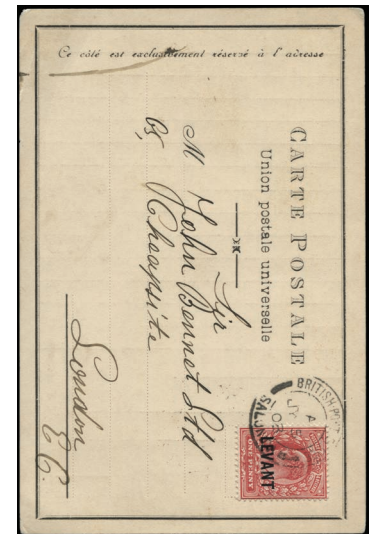 Ce côté est exclusivement réservé à l'adresse
CARTE POSTALE
Union postale universelle
Sir
M John Bennet Ltd
65, Cheapsite
London
E C.
BRITISH PO
SALO
LEVANT
ONE PENNY